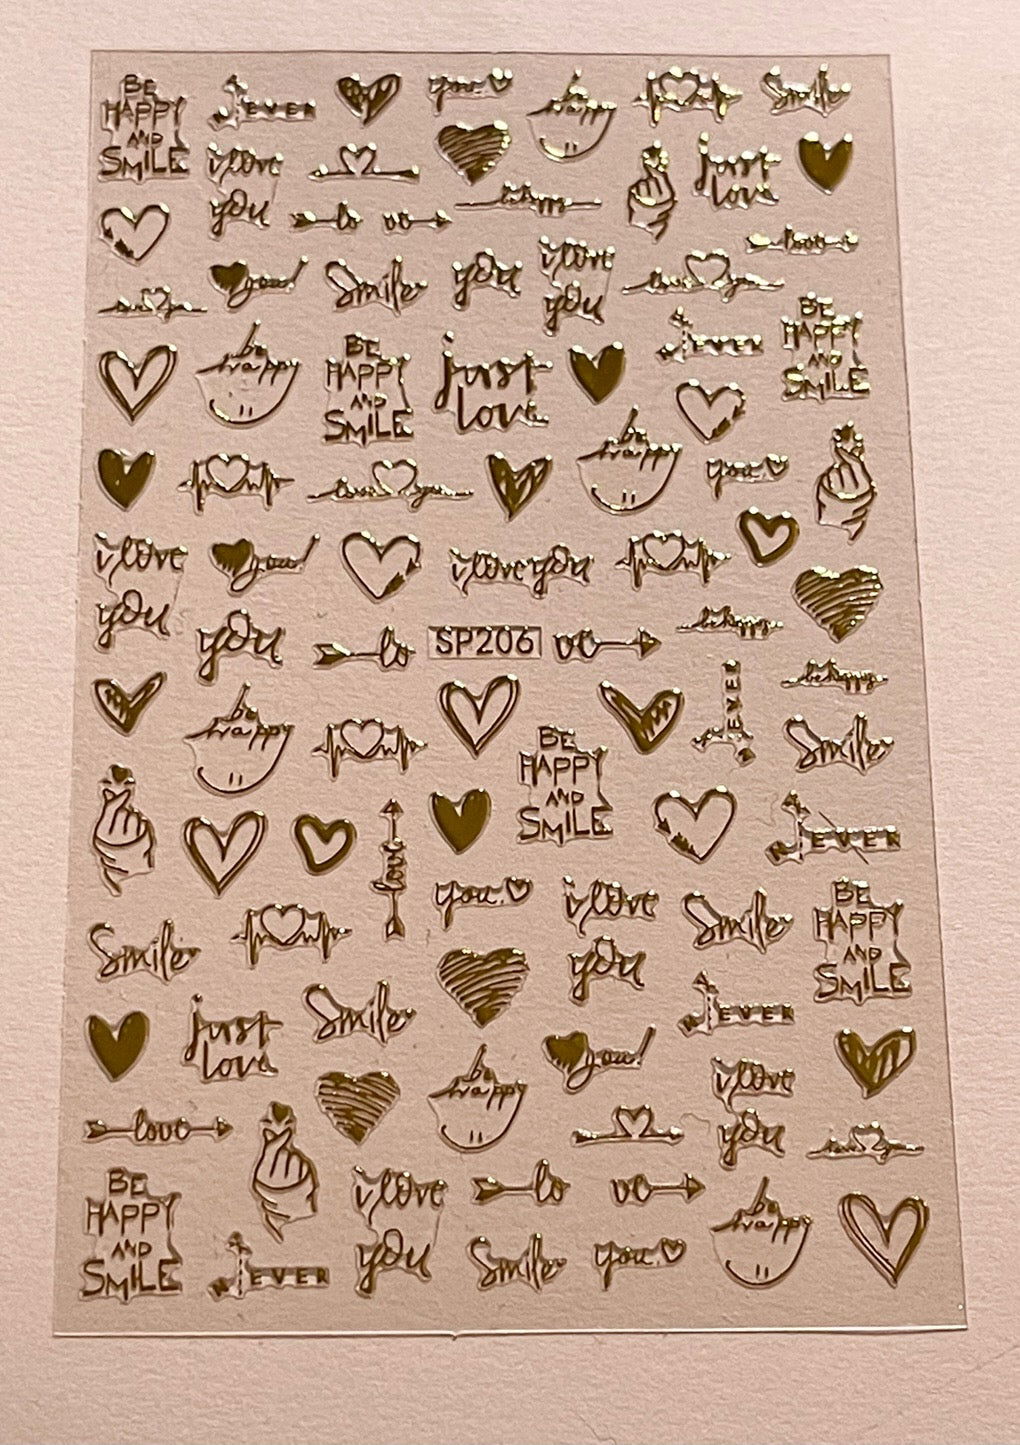 BE
HAPPY
AND
SMILE
EVER
you
be
happy
Smile
i love
you
just
love
lo ve
be happy
love
love you
you!
Smile
you
i love
you
love you
EVER
BE
HAPPY
AND
SMILE
be
happy
BE
HAPPY
AND
SMILE
just
love
be
happy
love you
you
i love
you
you!
i love you
be happy
you
lo
SP206
ve
be happy
EVER
be
happy
BE
HAPPY
AND
SMILE
Smile
love
EVER
you
i love
you
Smile
BE
HAPPY
AND
SMILE
Smile
just
love
Smile
EVER
you!
be
happy
i love
you
love
love you
BE
HAPPY
AND
SMILE
i love
you
lo ve
be
happy
EVER
Smile
you